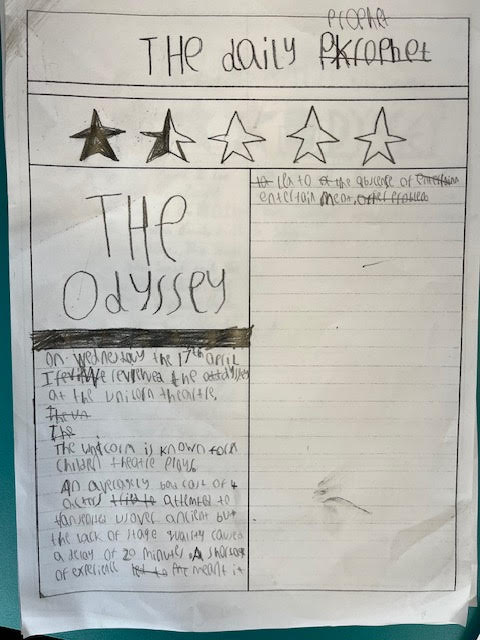 Prophet
THE daily Pkrophet
THE
Odyssey
on. Wednesday the 17th april
I reviewed the
at the unicorn theartre,
The
The unicorn is known for
children theatre plays
An averagely bad cast of 4
actors tried to attempted to
us over ancient but
the lack of stage quality caused
a delay of 20 minutes. A shortage
of experience led to meant it
led to the abscence of entertain
entertainment, other problems